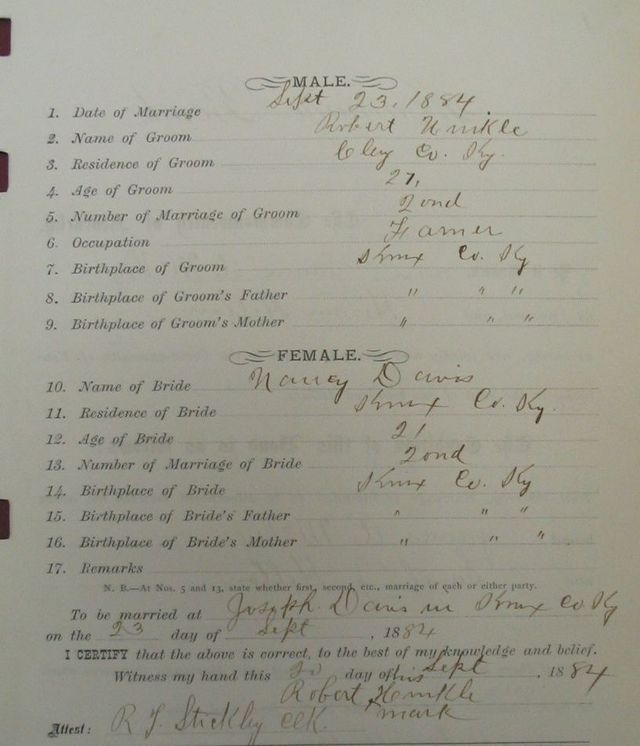 MALE.
1. Date of Marriage Sept 23, 1884.
2. Name of Groom Robert Hinkle
3. Residence of Groom Clay Co. Ky.
4. Age of Groom 27,
5. Number of Marriage of Groom 2ond
6. Occupation Farmer
7. Birthplace of Groom Knox Co. Ky
8. Birthplace of Groom's Father " " "
9. Birthplace of Groom's Mother " " "
FEMALE.
10. Name of Bride Nancy Davis
11. Residence of Bride Knox Co. Ky.
12. Age of Bride 21
13. Number of Marriage of Bride 2ond
14. Birthplace of Bride Knox Co. Ky
15. Birthplace of Bride's Father " " "
16. Birthplace of Bride's Mother " " "
17. Remarks
N. B.—At Nos. 5 and 13, state whether first, second, etc., marriage of each or either party.
To be married at Joseph Davis in Knox Co Ky
on the 23 day of Sept, 1884
I CERTIFY that the above is correct, to the best of my knowledge and belief.
Witness my hand this day of Sept, 1884
his
Robert Hinkle
mark
Attest: R. J. Stickley clk.